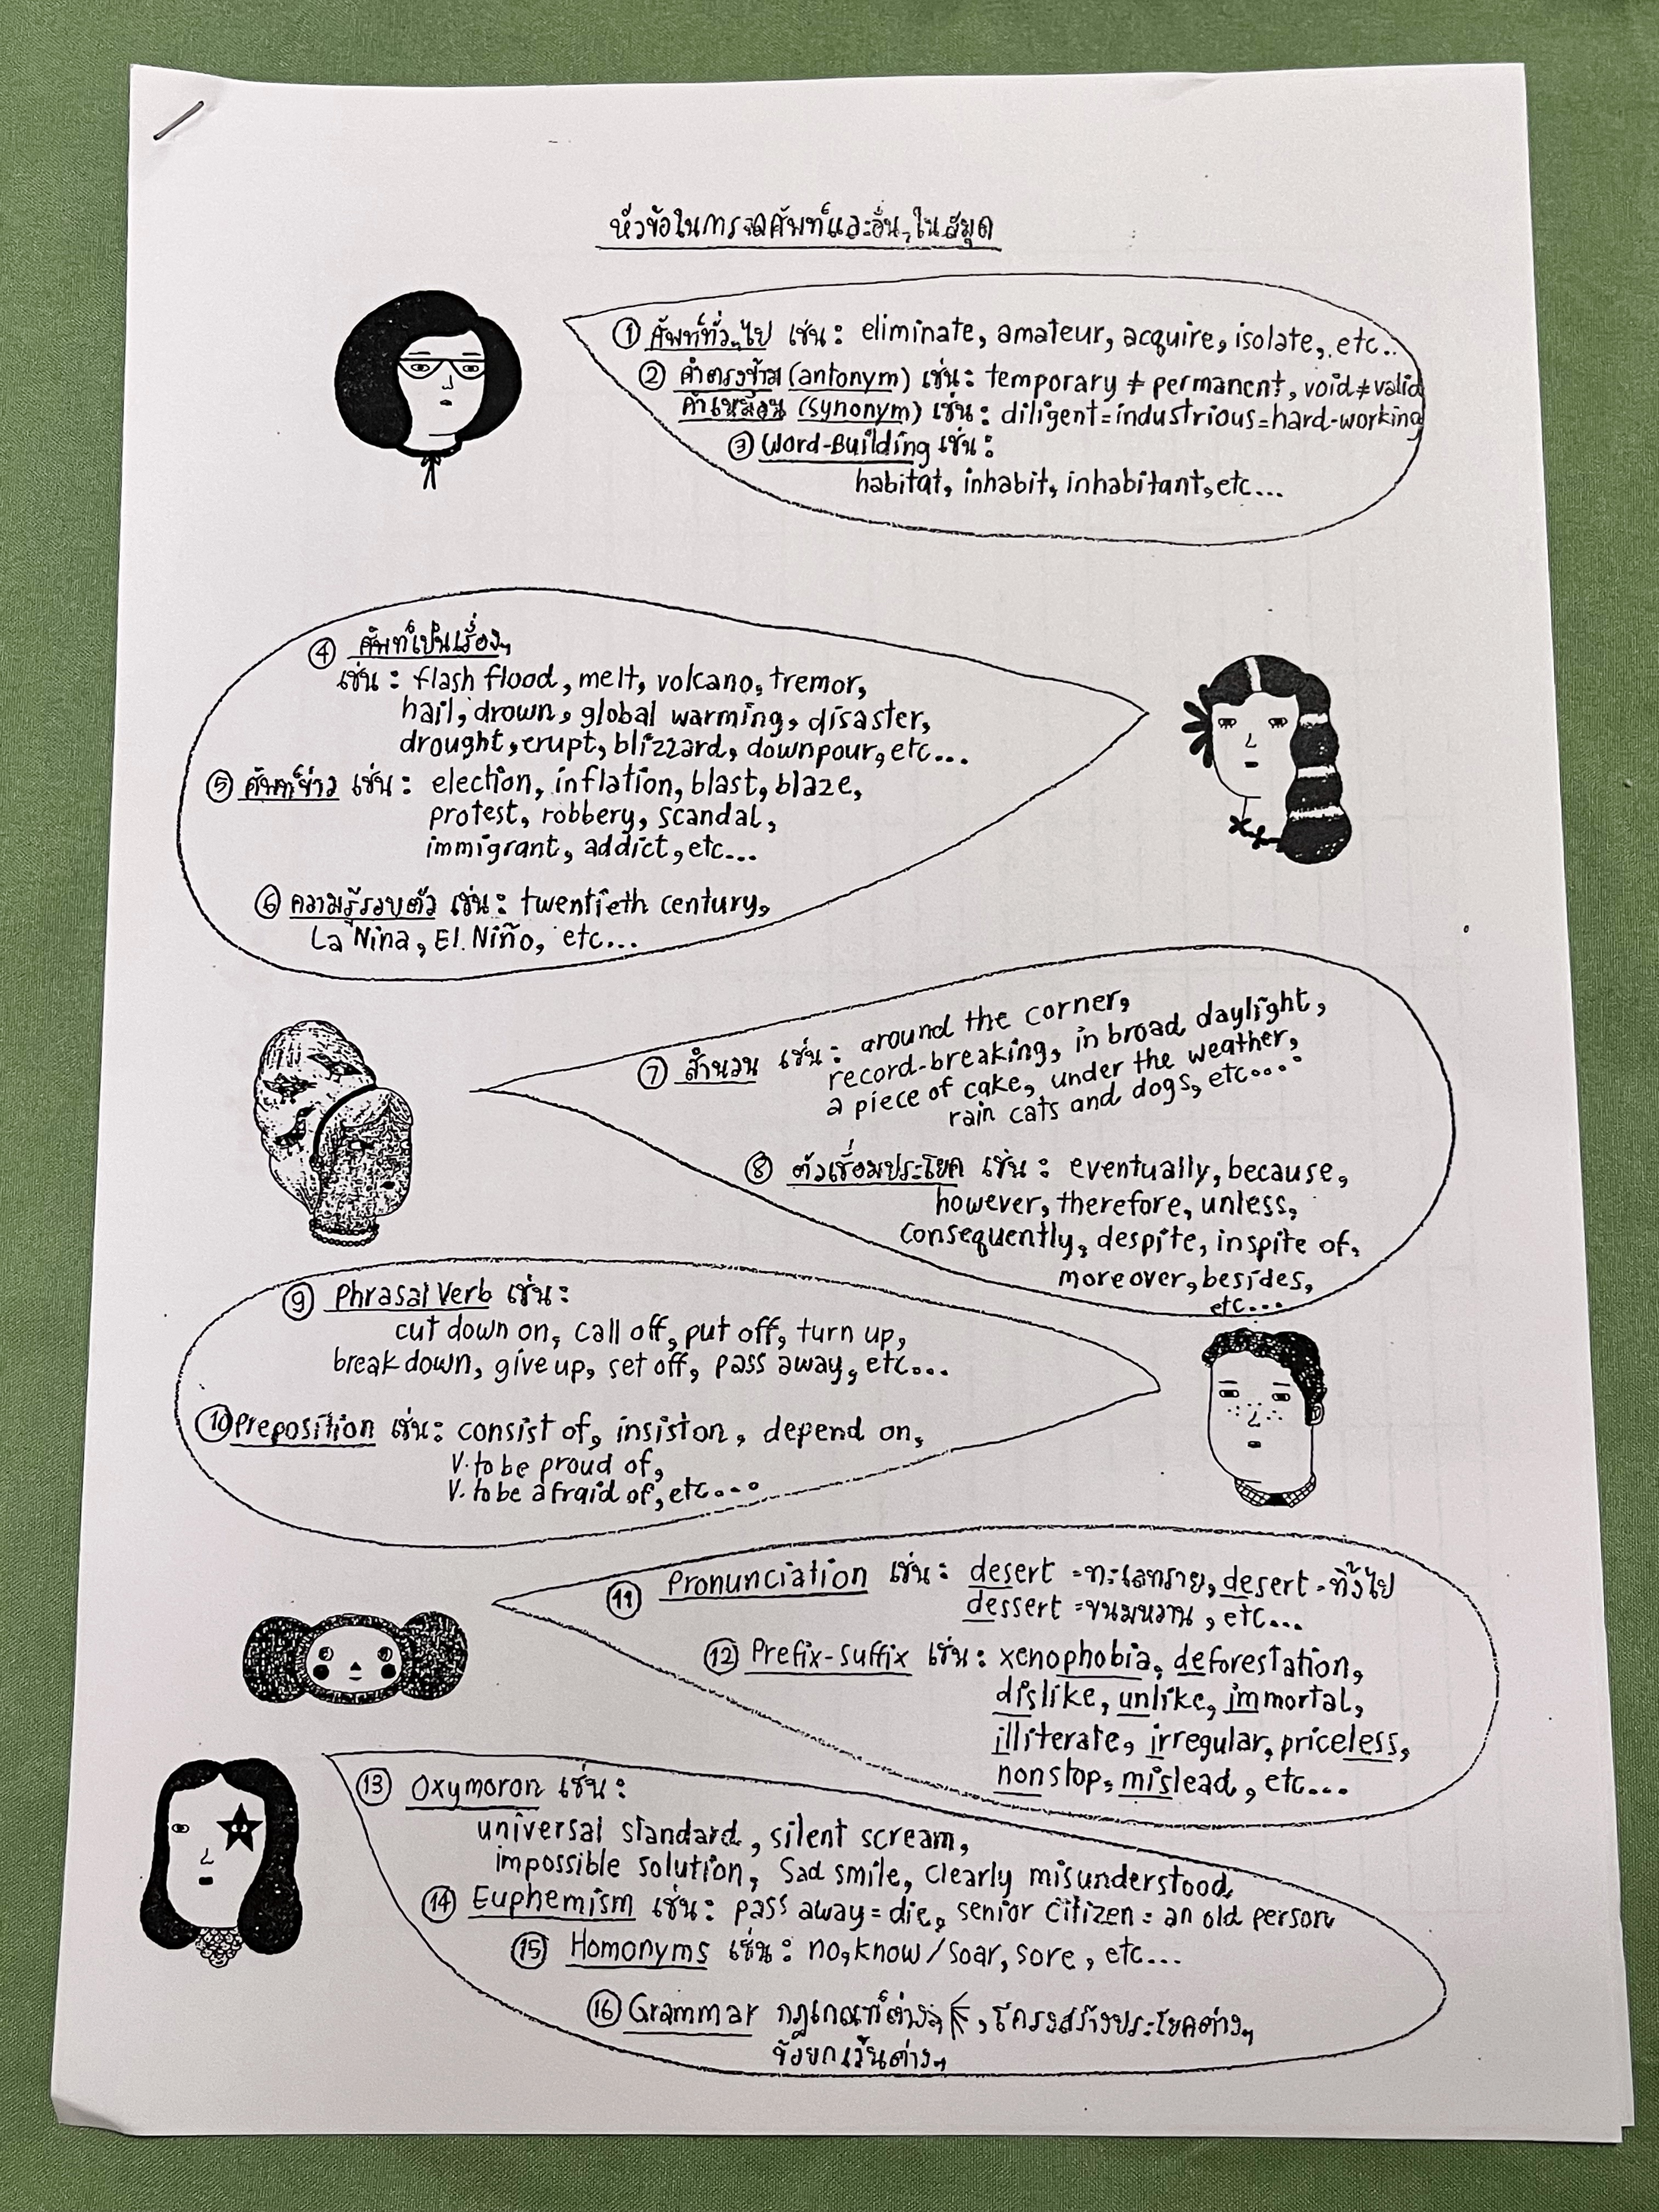 หัวข้อในการจดศัพท์และอื่นๆในสมุด
① ศัพท์ทั่วๆไป เช่น : eliminate, amateur, acquire, isolate, etc..
② คำตรงข้าม (antonym) เช่น : temporary ≠ permanent, void ≠ valid
คำเหมือน (synonym) เช่น : diligent = industrious = hard-working
③ Word-Building เช่น :
habitat, inhabit, inhabitant, etc...
④ ศัพท์เป็นเรื่องๆ
เช่น : flash flood, melt, volcano, tremor,
hail, drown, global warming, disaster,
drought, erupt, blizzard, downpour, etc...
⑤ ศัพท์ข่าว เช่น : election, inflation, blast, blaze,
protest, robbery, scandal,
immigrant, addict, etc...
⑥ ความรู้รอบตัว เช่น : twentieth century,
La Nina, El Niño, etc...
⑦ สำนวน เช่น : around the corner,
record-breaking, in broad daylight,
a piece of cake, under the weather,
rain cats and dogs, etc....
⑧ ตัวเชื่อมประโยค เช่น : eventually, because,
however, therefore, unless,
consequently, despite, inspite of,
moreover, besides,
etc...
⑨ Phrasal Verb เช่น :
cut down on, call off, put off, turn up,
break down, give up, set off, pass away, etc...
⑩ Preposition เช่น : consist of, insist on, depend on,
V. to be proud of,
V. to be afraid of, etc...
⑪ Pronunciation เช่น : desert = ทะเลทราย, desert = ทิ้งไป
dessert = ขนมหวาน, etc...
⑫ Prefix-Suffix เช่น : xenophobia, deforestation,
dislike, unlike, immortal,
illiterate, irregular, priceless,
nonstop, mislead, etc...
⑬ Oxymoron เช่น :
universal standard, silent scream,
impossible solution, Sad smile, clearly misunderstood
⑭ Euphemism เช่น : pass away = die, senior citizen = an old person
⑮ Homonyms เช่น : no, know / soar, sore, etc...
⑯ Grammar กฎเกณฑ์ต่างๆ, โครงสร้างประโยคต่างๆ
ข้อยกเว้นต่างๆ